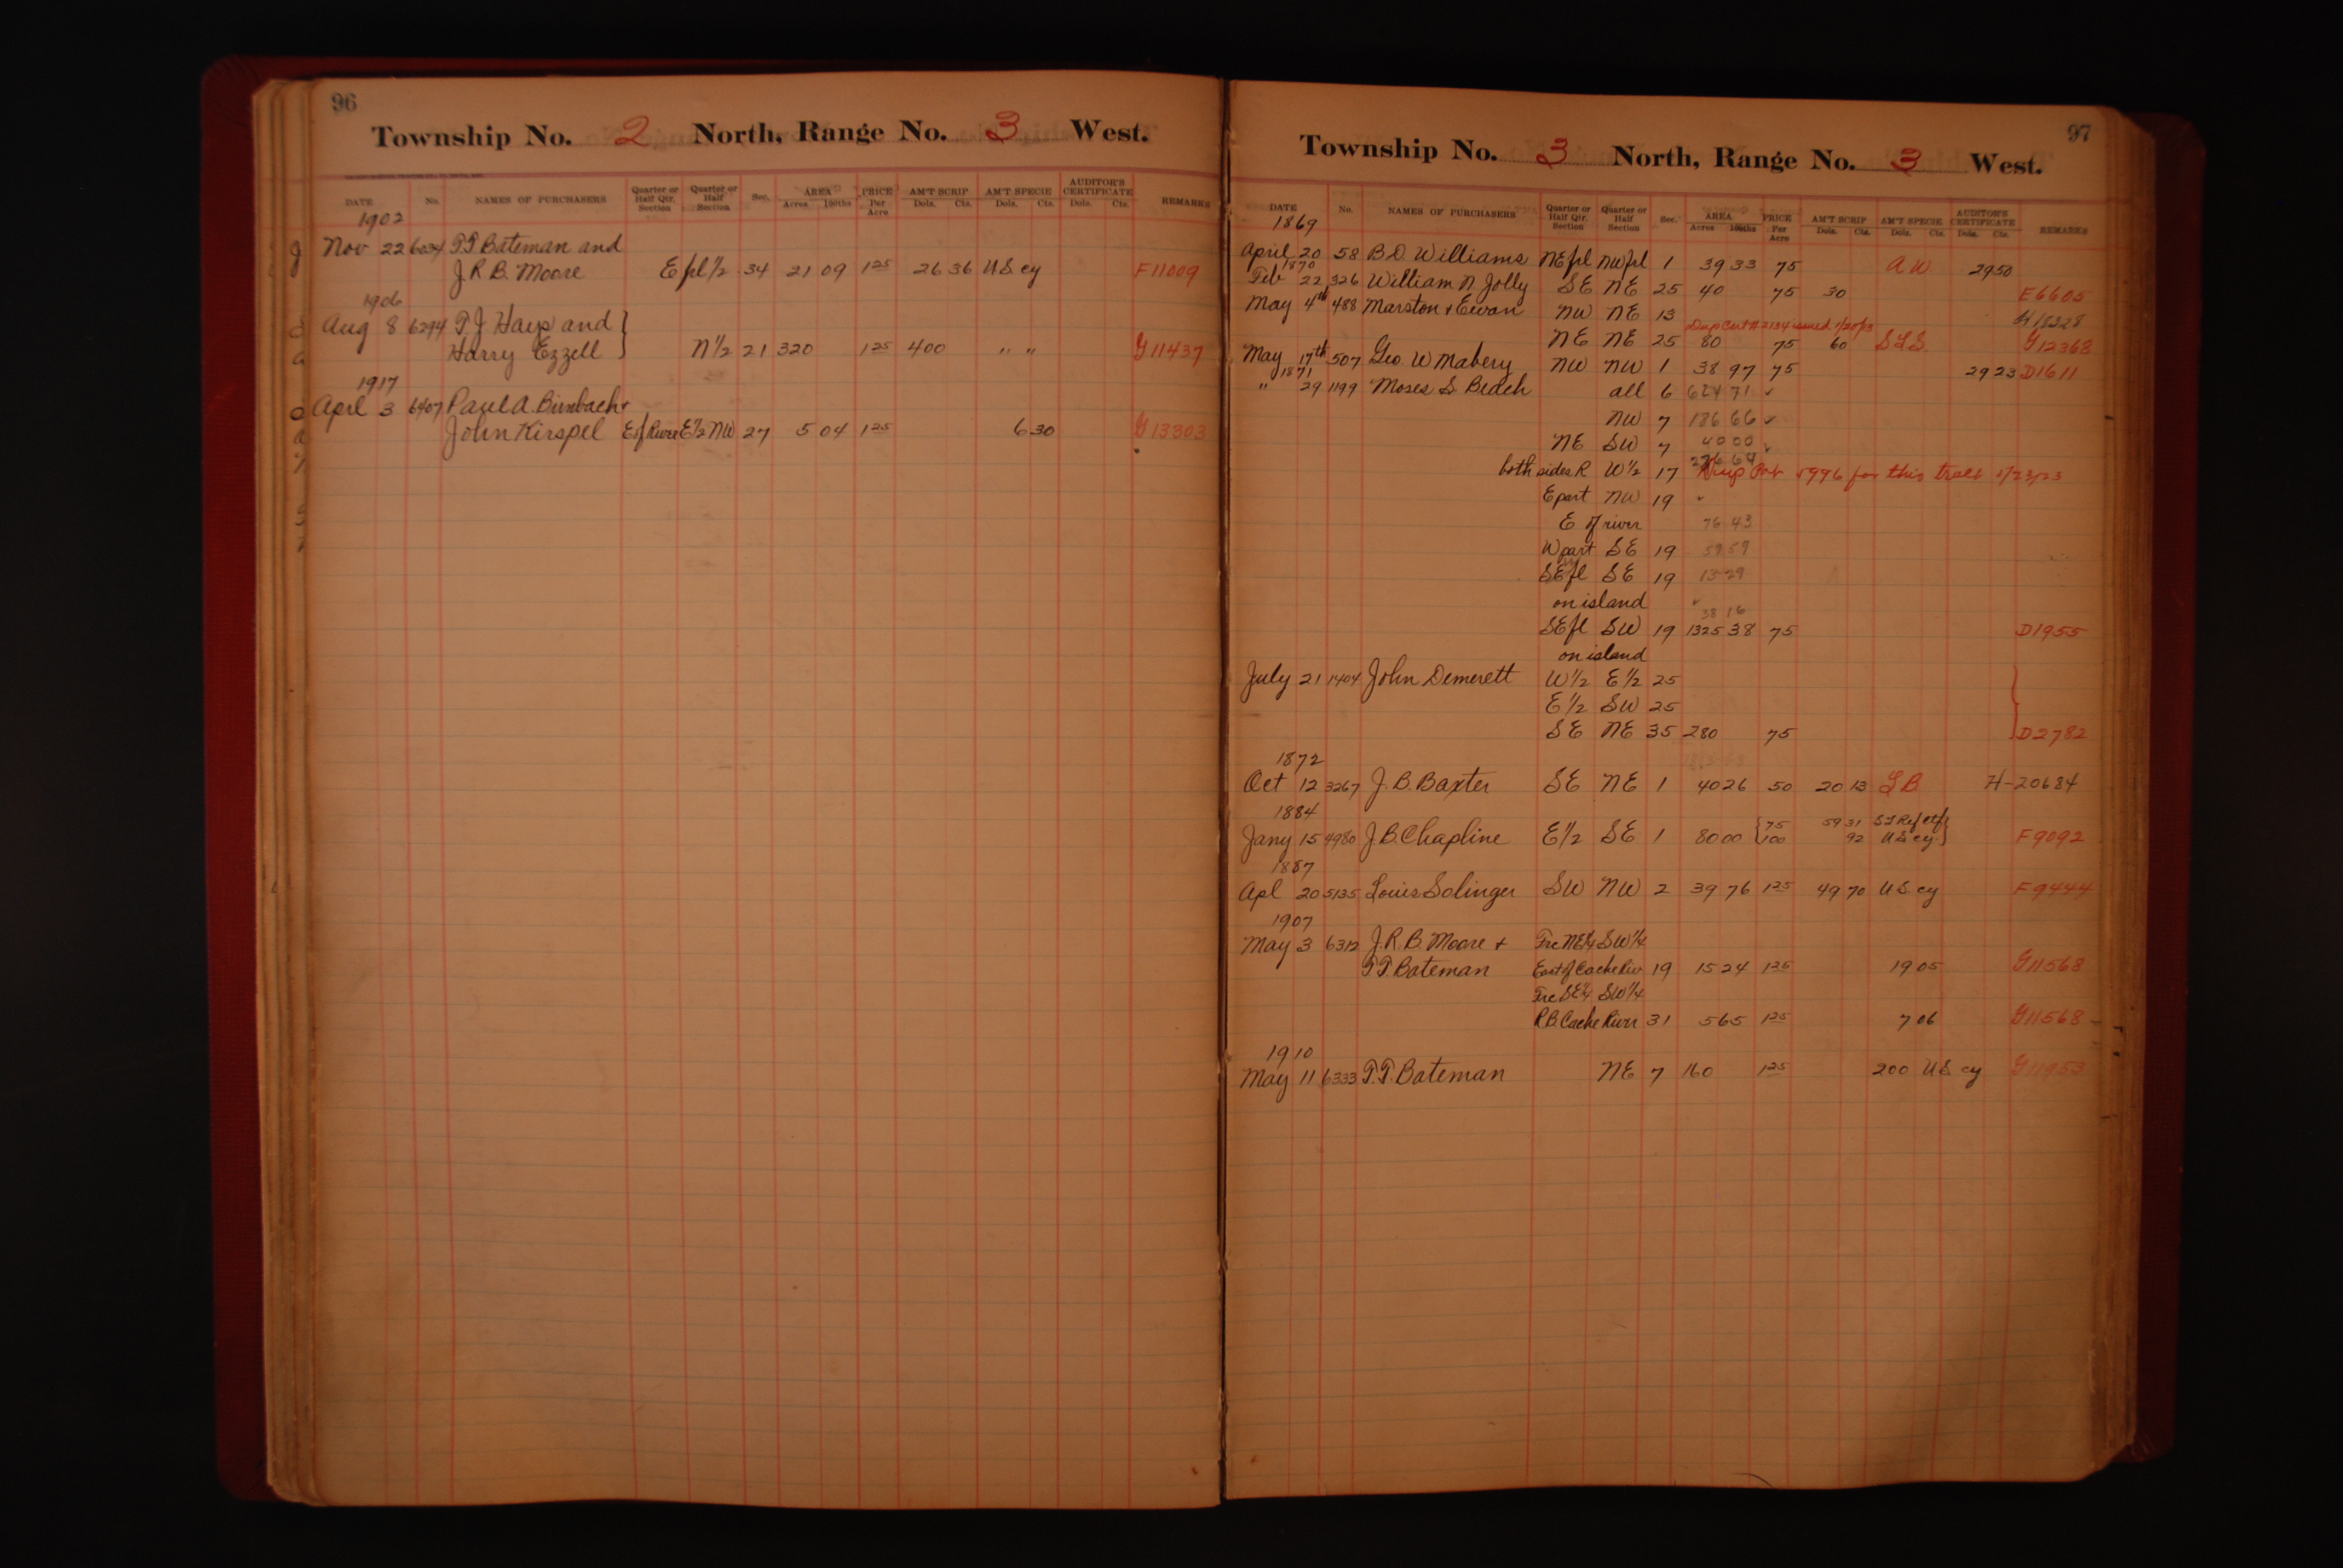 96
Township No. 2 North, Range No. 3 West.
DATE No. NAMES OF PURCHASERS Quarter or Half Qtr. Section Quarter or Half Section Sec. AREA Acres 100ths PRICE Per Acre AM'T SCRIP Dols. Cts. AM'T SPECIE Dols. Cts. AUDITOR'S CERTIFICATE Dols. Cts. REMARKS
1902
Nov 22 6034 T.T. Bateman and
J.R.B. Moore E frl ½ 34 21 09 1 25 26 36 U.S. cy F11009
1906
Aug 8 6294 T.J. Hays and }
Harry Ezzell N½ 21 320 1 25 400 " " G11437
1917
Apl 3 6407 Paul A. Birnbach +
John Kirspel E of River E½ NW 27 5 04 1 25 6 30 G13303
97
Township No. 3 North, Range No. 3 West.
DATE No. NAMES OF PURCHASERS Quarter or Half Qtr. Section Quarter or Half Section Sec. AREA Acres 100ths PRICE Per Acre AM'T SCRIP Dols. Cts. AM'T SPECIE Dols. Cts. AUDITOR'S CERTIFICATE Dols. Cts. REMARKS
1869
April 20 58 B.D. Williams NE frl NW frl 1 39 33 75 A W 29 50
1870
Feb 22 326 William N. Jolly SE NE 25 40 75 30 E6605
May 4th 488 Marston + Ewan NW NE 13 H18328
Dup Cert # 2134 issued 1/20/13
NE NE 25 80 75 60 S.L.S. G12368
May 17th 507 Geo. W Mabery NW NW 1 38 97 75 29 23 D1611
1871
" 29 1199 Moses S. Beach all 6 624 71 ✓
NW 7 186 66 ✓
NE SW 7 40 00 ✓
276 64
both sides R W½ 17 Dup Cert 5996 for this tract 1/23/23
E part NW 19 ✓
E of river 76 43
W part SE 19 59 59
SE fl SE 19 13 29
on island ✓
38 16
SE fl SW 19 1325 38 75 D1955
on island
July 21 1404 John Demerett W½ E½ 25
E½ SW 25
SE NE 35 280 75 D2782
1872
Oct 12 3267 J.B. Baxter SE NE 1 40 26 50 20 13 L B H-20684
1884
Jany 15 4980 J.B. Chapline E½ SE 1 80 00 { 75 59 31 S L Ref ctf }
100 92 U.S. cy F9092
1887
Apl 20 5135 Louis Solinger SW NW 2 39 76 1 25 49 70 U.S. cy F9444
1907
May 3 6312 J.R.B. Moore + Frc NE¼ SW¼
T.T. Bateman East of Cache Riv 19 15 24 1 25 19 05 G11568
Frc SE¼ SW¼
R.B. Cache River 31 5 65 1 25 7 06 G11568
1910
May 11 6333 T.T. Bateman NE 7 160 1 25 200 U.S. cy G11953